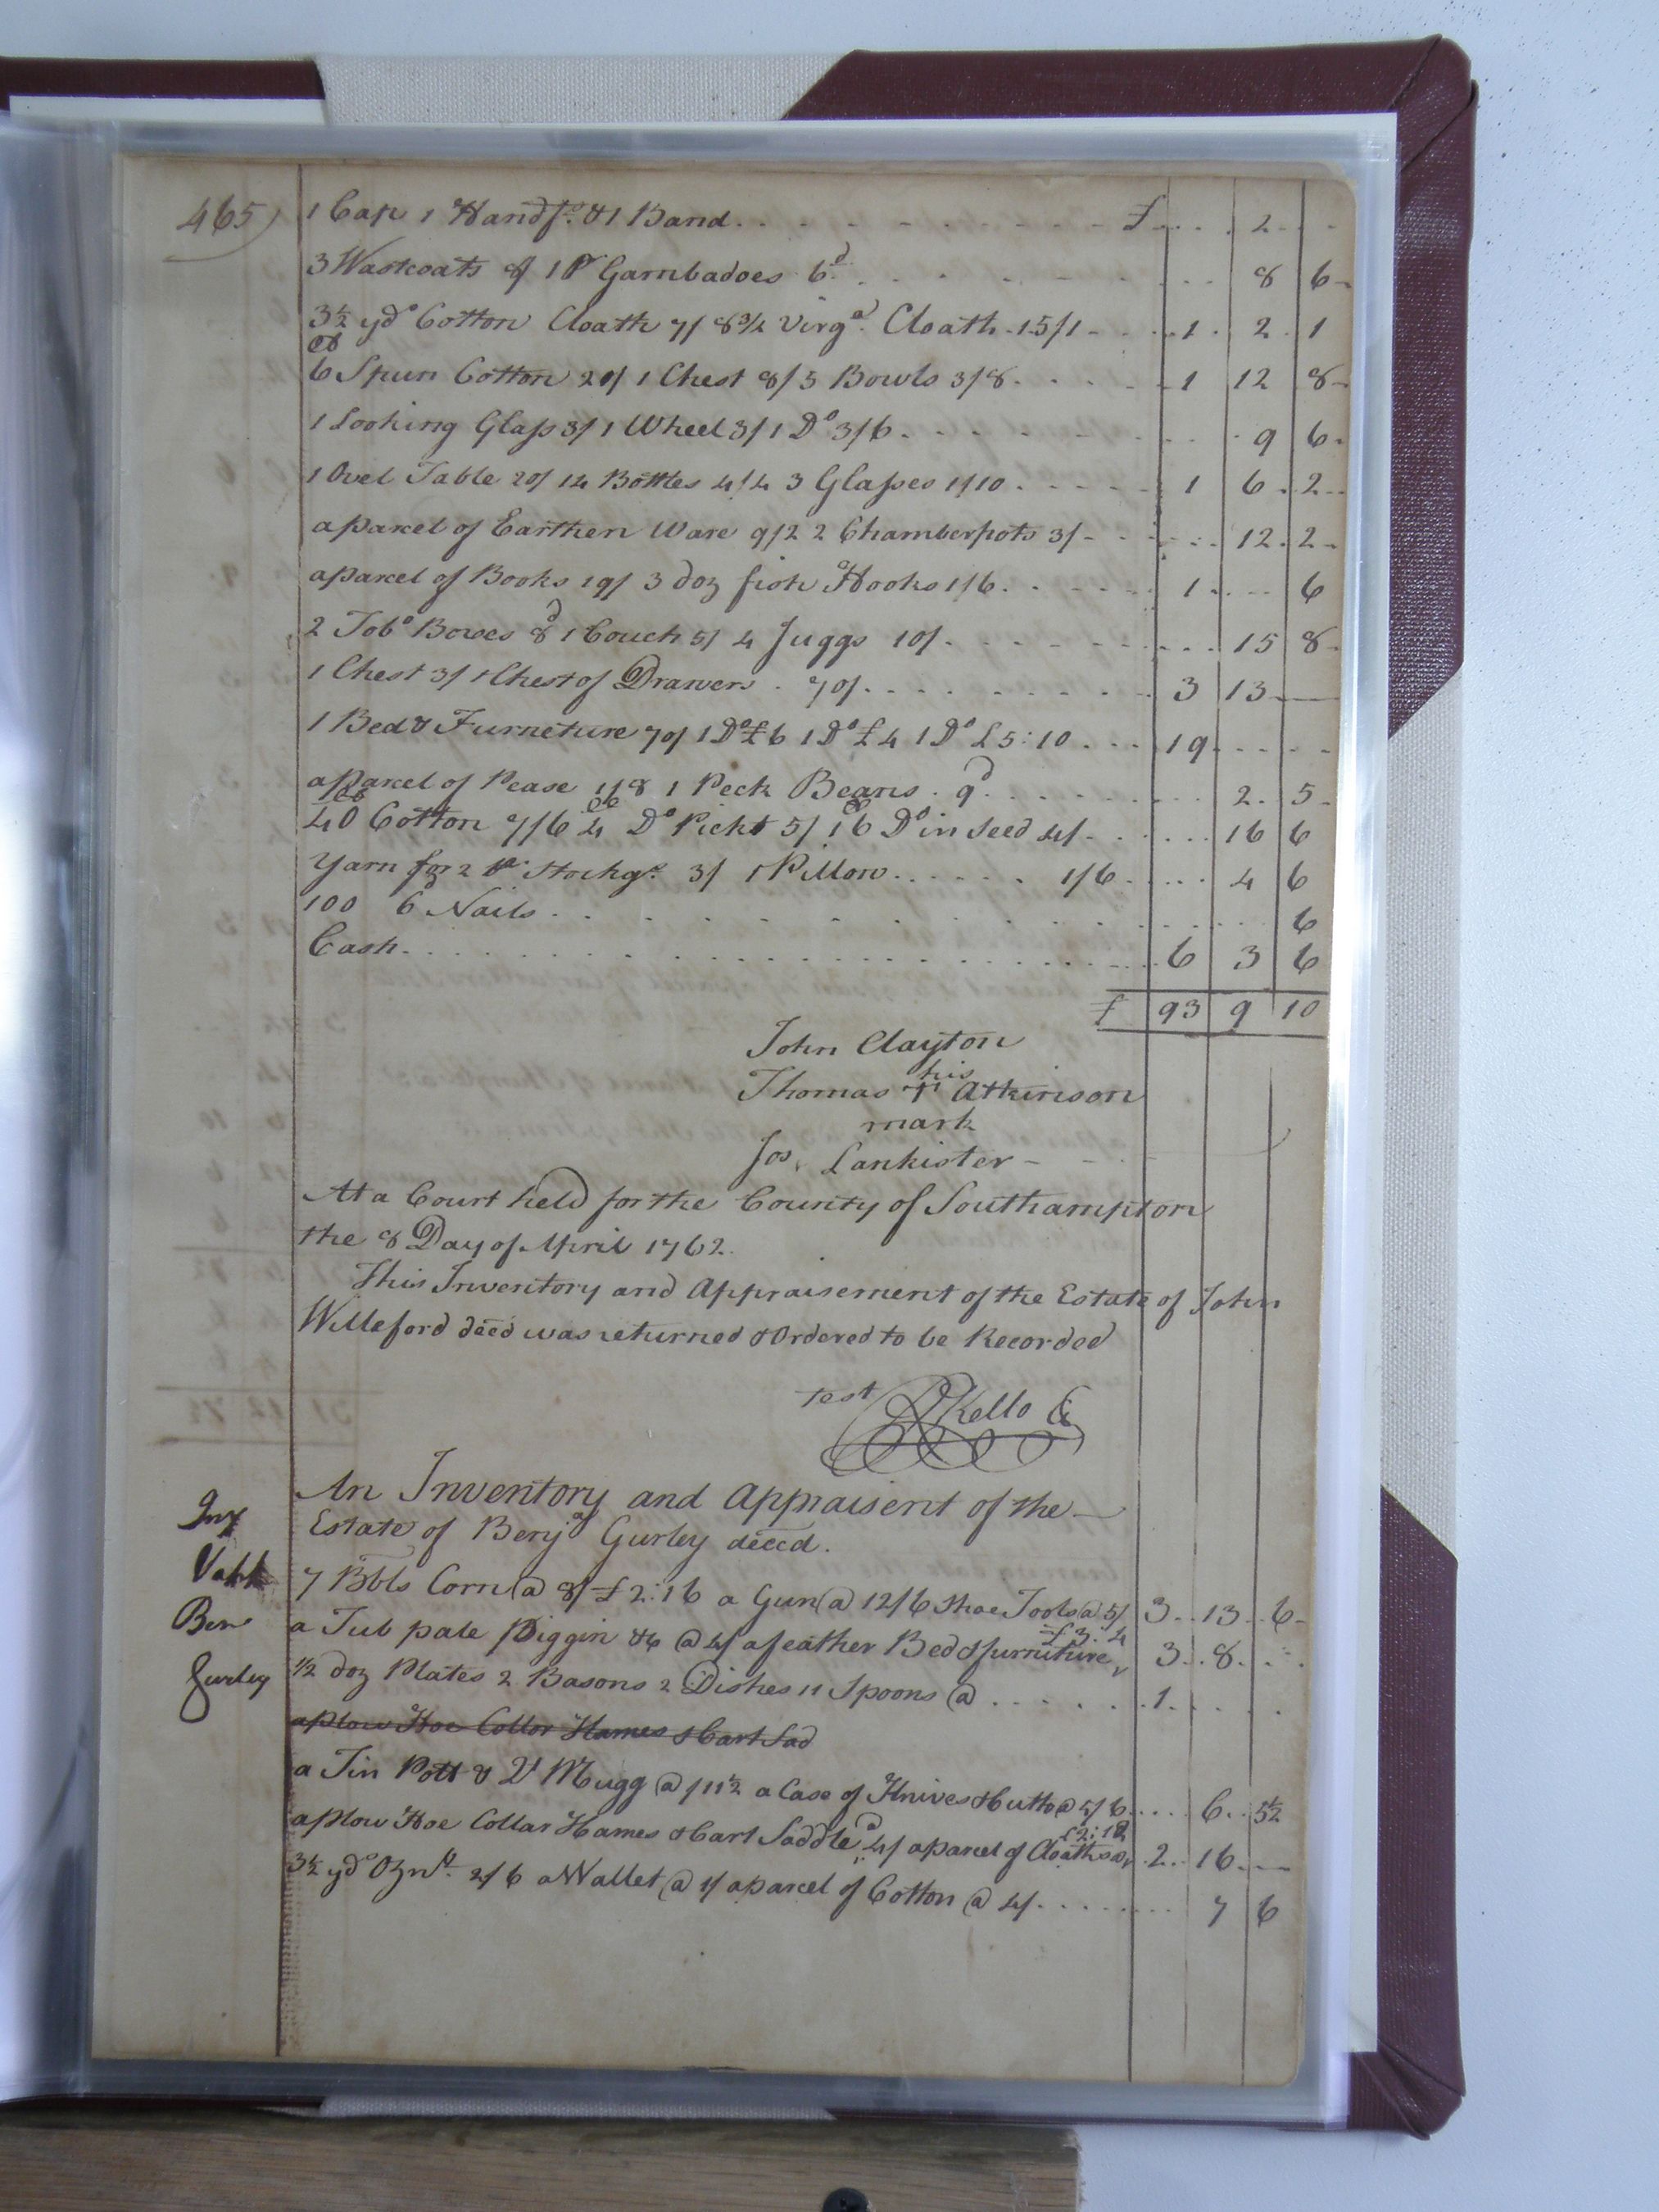 465)
1 Cap 1 Handf. & 1 Band . . . £ . . . 2 . .
3 Wastcoats 8/ 1 Pr Gambadoes 6d . . . 8 6
3½ yds Cotton Cloath 7/ 8¾ Virga. Cloath 15/1 . . . 1 2 1
lb
6 Spun Cotton 20/ 1 Chest 9/ 5 Bowls 3/8 . . . 1 12 8
1 Looking Glass 3/ 1 Wheel 3/ 1 Do 3/6 . . . 9 6
1 Ovel Table 20/ 14 Bottles 4/4 3 Glasses 1/10 . . . 1 6 2
a parcel of Earthen Ware 9/2 2 Chamberpots 3/ . . . 12 2
a parcel of Books 19/ 3 doz fish Hooks 1/6 . . . 1 . . 6
2 Tobo Boxes 8d 1 Couch 5/ 4 Juggs 10/ . . . 15 8
1 Chest 3/ 1 Chest of Drawers 70/ . . . 3 13 —
1 Bed & Furneture 70/ 1 Do £6 1 Do £4 1 Do £5:10 . . . 19 . . .
a parcel of Pease 1/8 1 Peck Beans 9d . . . 2 5
40 lb Cotton 7/6 4 lb Do Pickt 5/ 16 lb Do in seed 4/ . . . 16 6
Yarn for 2 pr Stockgs 3/ 1 Pillow . . . 1/6 . . . 4 6
100 6d Nails . . . 6
Cash . . . 6 3 6
£ 93 9 10
John Clayton
his
Thomas T Atkinson
mark
Jos. Lankister
At a Court held for the County of Southampton
the 8 Day of April 1762.
This Inventory and Appraisement of the Estate of John
Willeford decd was returned & Ordered to be Recorded
Test R Kello Cl
An Inventory and Appraisent of the
Estate of Benja Gurley deccd.
Inv
Vabk
Ben
Gurley
7 Bbls Corn @ 8/ £2:16 a Gun @ 12/6 Shoe Tools @ 5/ 3 13 6
a Tub pale Piggin &c @ 4/ a feather Bed & furniture £3:4 3 8 . .
½ doz Plates 2 Basons 2 Dishes 11 Spoons @ . . . 1 . . .
a plow Hoe Collor Hames & Cart Sad
a Tin Pott & Do Mugg @ /11½ a Case of Knives & butto @ 5/6 . . . 6 5½
a plow Hoe Collar Hames & Cart Saddle @ 4/ a parcel of Cloaths @ £2:12 2 16 —
3½ yds Oznb. 2/6 a Wallet @ 1/ a parcel of Cotton @ 4/ . . . 7 6